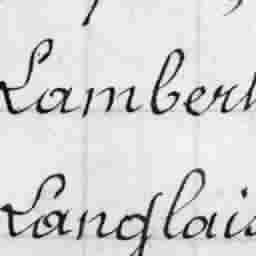 Lambert
Langlais